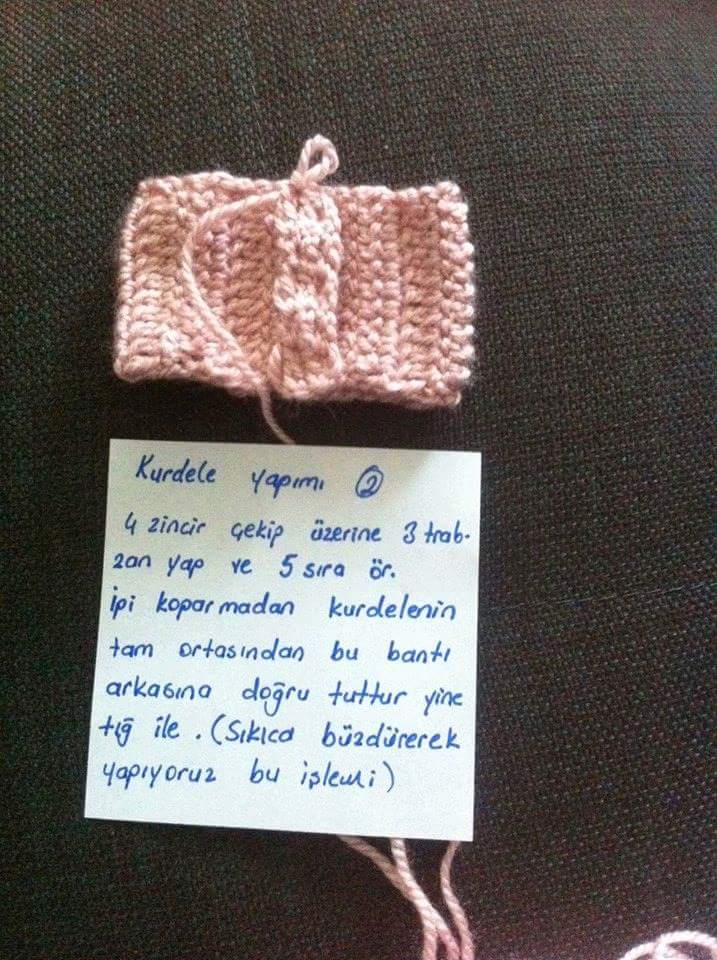 Kurdele yapımı ②
4 zincir çekip üzerine 3 trab-
zan yap ve 5 sıra ör.
İpi koparmadan kurdelenin
tam ortasından bu bantı
arkasına doğru tuttur yine
tığ ile. (Sıkıca büzdürerek
yapıyoruz bu işlemi)